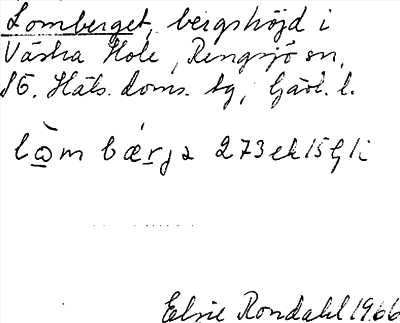 Lomberget, bergshöjd i
Västra Hole, Rengsjö sn,
SÖ. Häls. doms. tg, Gävl. l.
lòm bǽrja 273 ek 15 G li
Elsie Rondahl 1966